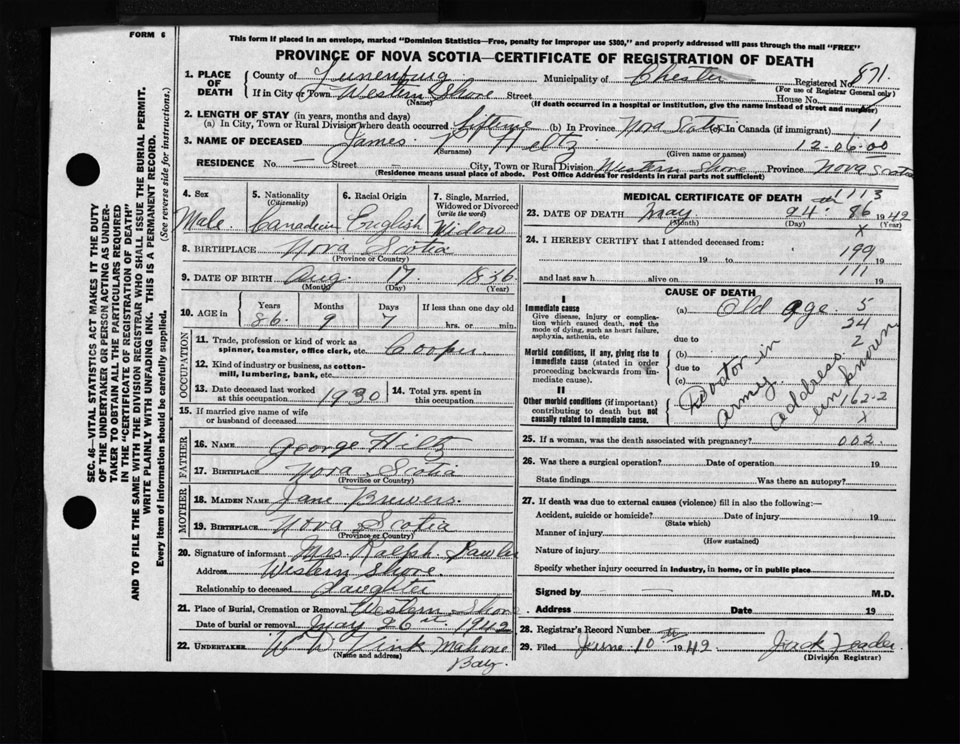 FORM 6
This form if placed in an envelope, marked "Dominion Statistics—Free, penalty for improper use $300," and properly addressed will pass through the mail "FREE"
PROVINCE OF NOVA SCOTIA—CERTIFICATE OF REGISTRATION OF DEATH
1. PLACE OF DEATH County of Lunenburg Municipality of Chester Registered No. 871.
(For use of Registrar General only)
If in City or Town Western Shore Street House No.
(Name) (If death occurred in a hospital or institution, give the name instead of street and number)
2. LENGTH OF STAY (in years, months and days)
(a) In City, Town or Rural Division where death occurred lifetime (b) In Province Nova Scotia In Canada (if immigrant) 1
3. NAME OF DECEASED James Hiltz 12-06-00
(Surname) (Given name or names)
RESIDENCE No. — Street — City, Town or Rural Division Western Shore Province Nova Scotia
(Residence means usual place of abode. Post Office Address for residents in rural parts not sufficient)
4. Sex Male
5. Nationality (Citizenship) Canadian
6. Racial Origin English
7. Single, Married, Widowed or Divorced (write the word) Widow
8. BIRTHPLACE Nova Scotia
(Province or Country)
9. DATE OF BIRTH Aug 17 1836
(Month) (Day) (Year)
10. AGE in Years 86 Months 9 Days 7 If less than one day old
hrs. or min.
OCCUPATION
11. Trade, profession or kind of work as spinner, teamster, office clerk, etc. Cooper.
12. Kind of industry or business, as cotton-mill, lumbering, bank, etc.
13. Date deceased last worked at this occupation 1930
14. Total yrs. spent in this occupation
15. If married give name of wife or husband of deceased
FATHER
16. NAME George Hiltz
17. BIRTHPLACE Nova Scotia
(Province or Country)
MOTHER
18. MAIDEN NAME Jane Brewers.
19. BIRTHPLACE Nova Scotia
(Province or Country)
20. Signature of informant Mrs. Ralph
Address Western Shore.
Relationship to deceased daughter
21. Place of Burial, Cremation or Removal Western Shore
Date of burial or removal May 26 1942
22. UNDERTAKER W D Vink Mahone Bay.
(Name and address)
MEDICAL CERTIFICATE OF DEATH 1113
23. DATE OF DEATH May 24th 86 1942
(Day) (Year)
X
24. I HEREBY CERTIFY that I attended deceased from:
19 to 199 19
and last saw h alive on 111 19
CAUSE OF DEATH
I
Immediate cause (a) Old age 5
Give disease, injury or complication which caused death, not the mode of dying, such as heart failure, asphyxia, asthenia, etc
24
due to
Morbid conditions, if any, giving rise to immediate cause (stated in order proceeding backwards from immediate cause).
(b) 2
due to
(c)
II
Other morbid conditions (if important) contributing to death but not causally related to immediate cause.
Doctor in army. address unknown
162-2
X
25. If a woman, was the death associated with pregnancy? 002.
26. Was there a surgical operation? Date of operation 19
State findings Was there an autopsy?
27. If death was due to external causes (violence) fill in also the following:—
Accident, suicide or homicide? Date of injury 19
(State which)
Manner of injury
(How sustained)
Nature of injury
Specify whether injury occurred in industry, in home, or in public place
Signed by — M.D.
Address Date 19
28. Registrar's Record Number
29. Filed June 10th 1942 Jack Zeader
(Division Registrar)
SEC. 46—VITAL STATISTICS ACT MAKES IT THE DUTY
OF THE UNDERTAKER OR PERSON ACTING AS UNDERTAKER TO OBTAIN ALL THE PARTICULARS REQUIRED
IN THE "CERTIFICATE OF REGISTRATION OF DEATH"
AND TO FILE THE SAME WITH THE DIVISION REGISTRAR WHO SHALL ISSUE THE BURIAL PERMIT.
WRITE PLAINLY WITH UNFADING INK. THIS IS A PERMANENT RECORD.
Every item of information should be carefully supplied. (See reverse side for instructions.)